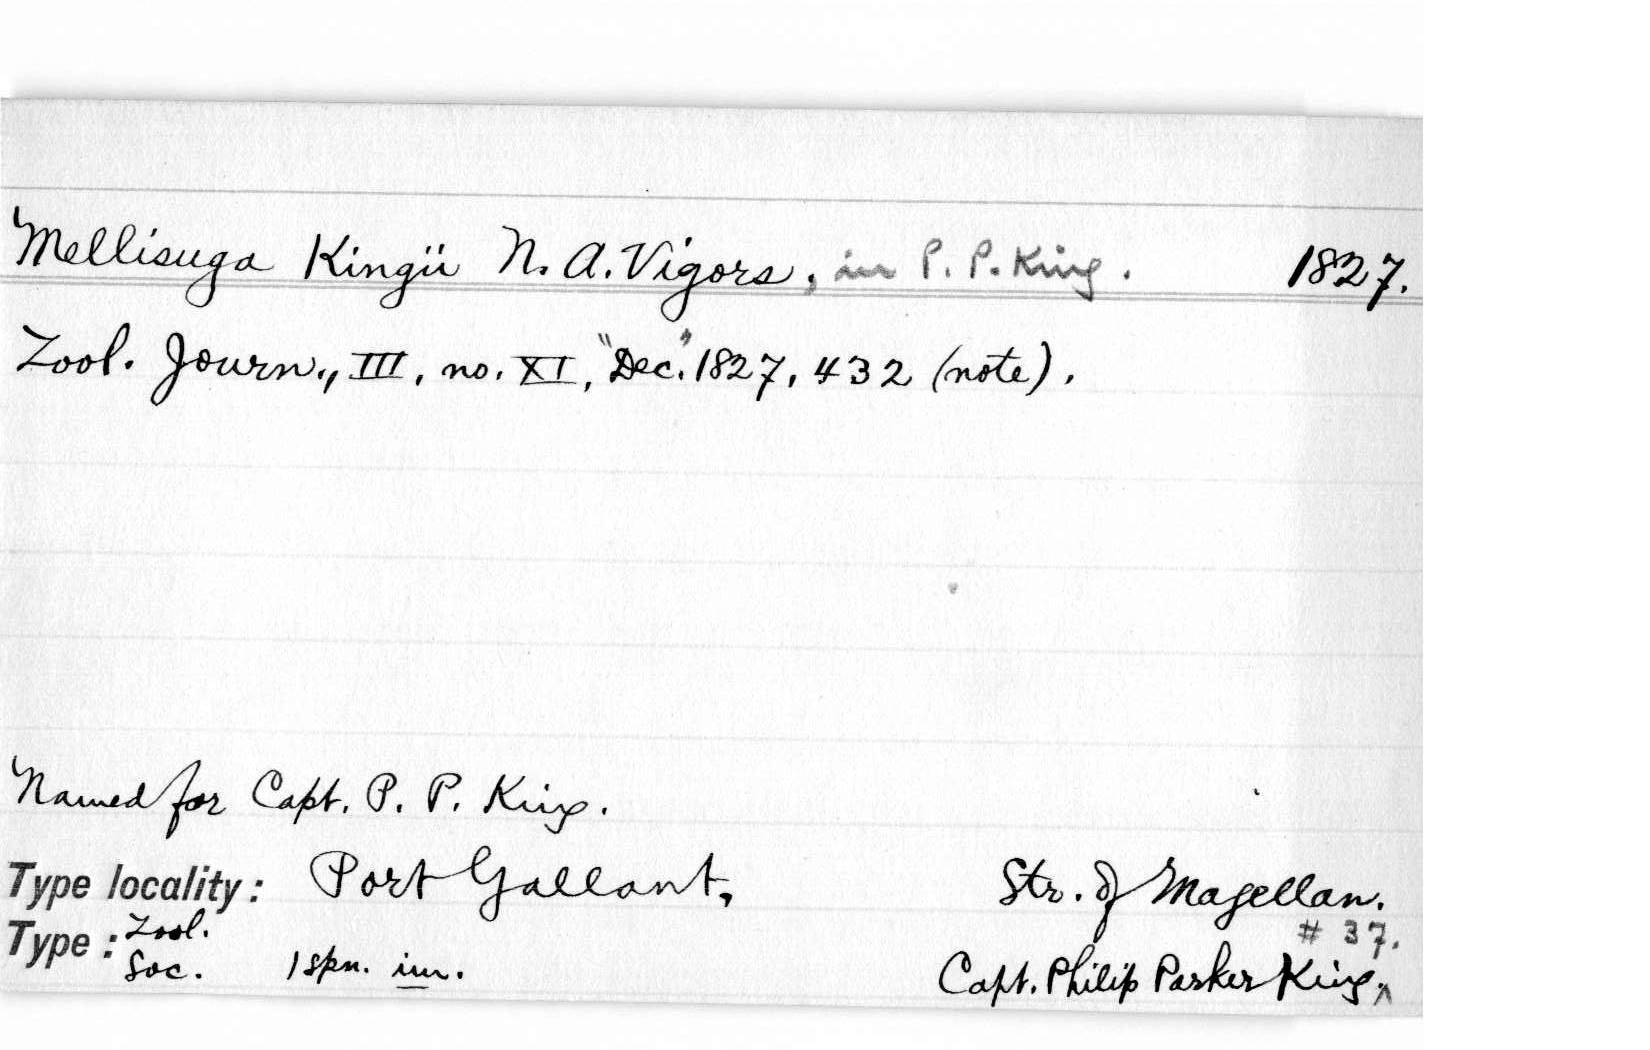 Mellisuga Kingii N. A. Vigors, in P. P. King. 1827.
Zool. Journ., III, no. XI, "Dec." 1827, 432 (note).
Named for Capt. P. P. King.
Type locality: Port Gallant, Str. of Magellan.
Type: Zool. Soc. 1 spn. im. # 37.
Capt. Philip Parker King.^